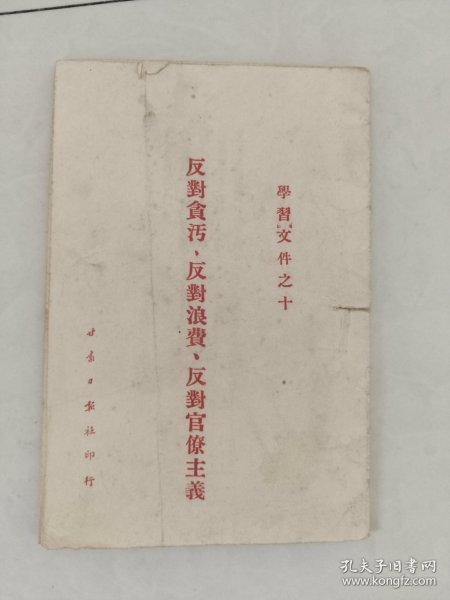 學習文件之十
反對貪汚、反對浪費、反對官僚主義
甘肅日報社印行
孔夫子旧书网
www.kongfz.com